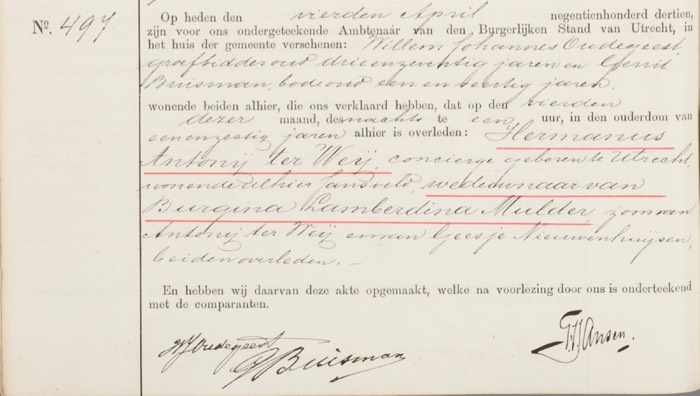 No. 497.
Op heden den vierden April negentienhonderd dertien,
zijn voor ons ondergeteekende Ambtenaar van den Burgerlijken Stand van Utrecht, in
het huis der gemeente verschenen: Willem Johannes Oudegeest,
graafbidder oud drieenzeventig jaren en Gerrit
Buisman, bode oud een en veertig jaren,
wonende beiden alhier, die ons verklaard hebben, dat op den vierden
dezer maand, des nachts te een uur, in den ouderdom van
eenenzestig jaren alhier is overleden: Hermanus
Antonij ter Weij, concierge geboren te Utrecht,
wonende alhier weduwnaar van
Burgina Lamberdina Mulder, zoon van
Antonij ter Weij en van Geesje Nieuwenhuijsen,
beiden overleden. —
En hebben wij daarvan deze akte opgemaakt, welke na voorlezing door ons is onderteekend
met de comparanten.
WJ Oudegeest
G Buisman
Jansen.